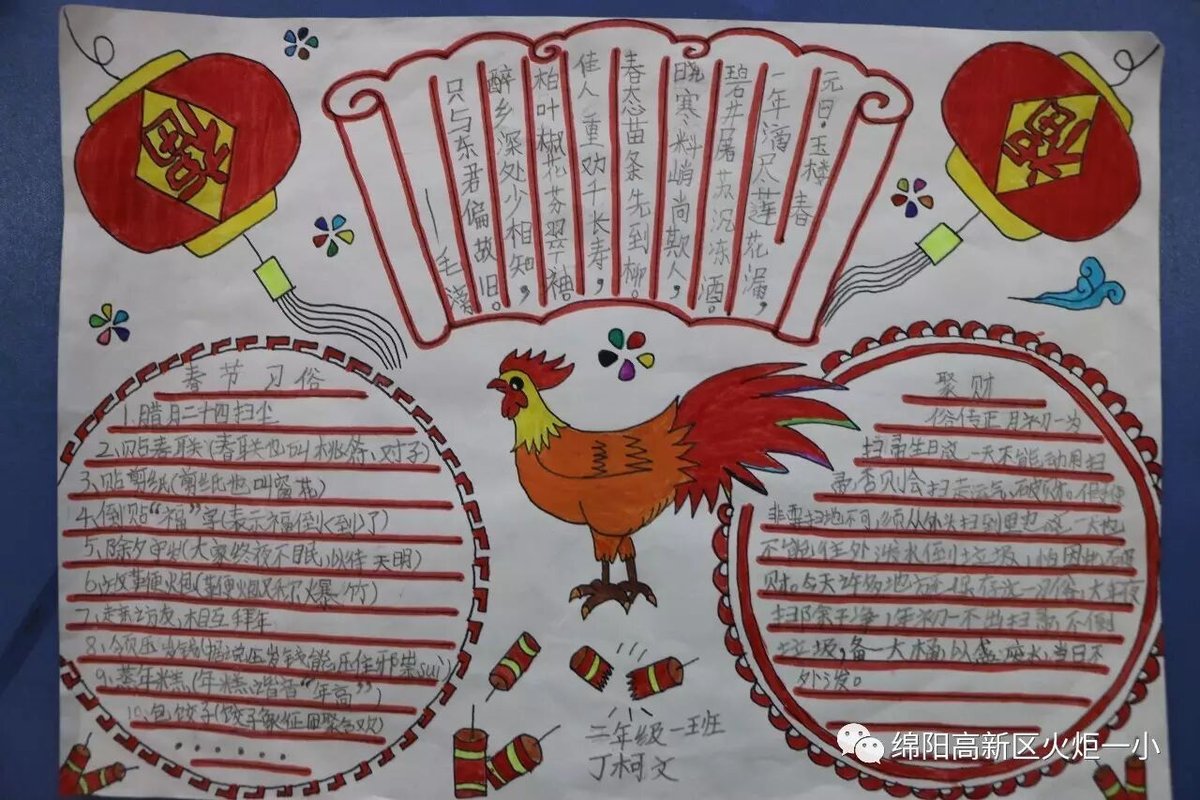 福
福
元日·玉楼春
一年滴尽莲花漏，
碧井屠苏沉冻酒。
晓寒料峭尚欺人，
春态苗条先到柳。
佳人重劝千长寿，
柏叶椒花芬翠袖
醉乡深处少相知，
只与东君偏故旧。
——毛滂
春节习俗
1.腊月二十四扫尘
2.贴春联(春联也叫桃符、对子)
3.贴剪纸(剪纸也叫窗花)
4.倒贴“福”字(表示福倒(到)了)
5.除夕守岁(大家终夜不眠,以待天明)
6.放鞭火包(鞭炮又称爆竹)
7.走亲访友,相互拜年
8.领压岁钱(据说压岁钱能压住邪祟suì)
9.蒸年糕.(年糕谐音“年高”)
10.包饺子(饺子象征团聚合欢)
......
聚财
俗传正月初一为
扫帚生日这一天不能动用扫
帚,否则会扫走运气,破财.假使
非要扫地不可,须从外头扫到里边.这一天也
不能往外泼水倒垃圾,怕因此破
财.今天许多地方还保存这一习俗,大年夜
扫除干净,年初一不出扫帚,不倒
垃圾,备一大桶,以盛废水,当日不
外泼。
三年级一班
丁柯文
绵阳高新区火炬一小